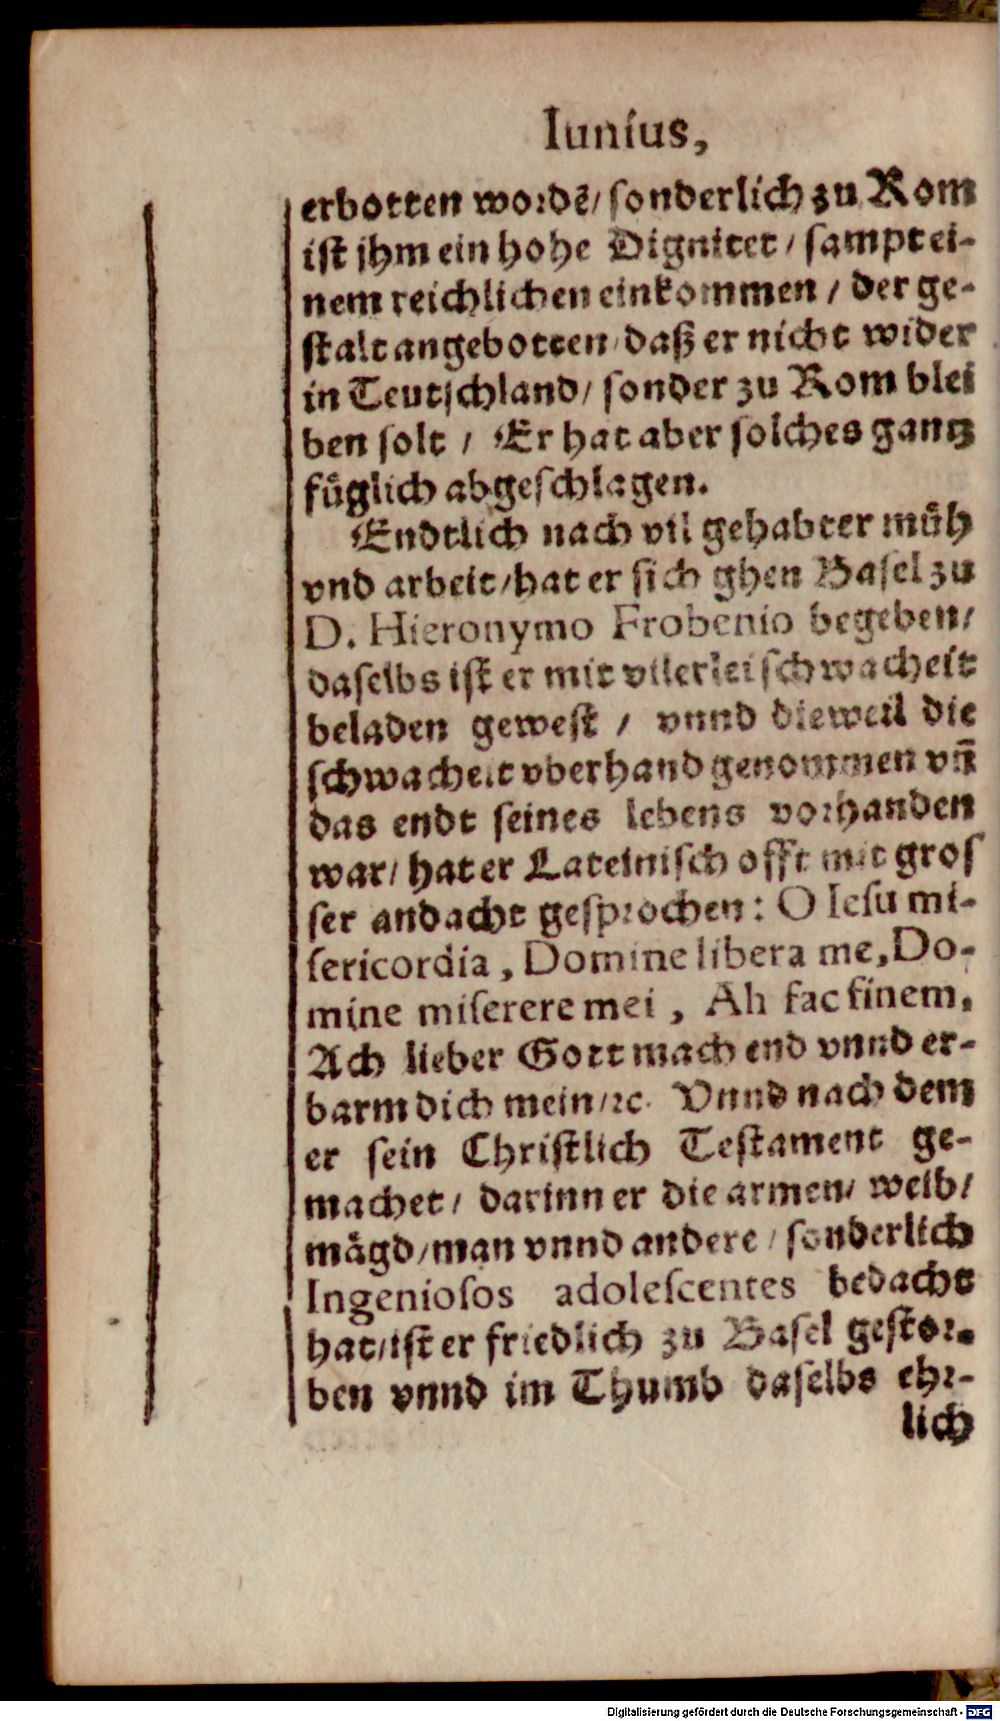 Iunius,
erbotten wordē/ sonderlich zu Rom
ist jhm ein hohe Dignitet / sampt ei-
nem reichlichen einkommen / der ge-
stalt angebotten/ daß er nicht wider
in Teutschland/ sonder zu Rom blei
ben solt / Er hat aber solches gantz
füglich abgeschlagen.
Endtlich nach vil gehabter müh
vnd arbeit/ hat er sich ghen Basel zu
D. Hieronymo Frobenio begeben/
daselbs ist er mit vilerlei schwacheit
beladen gewest / vnnd dieweil die
schwacheit vberhand genommen vñ
das endt seines lebens vorhanden
war/ hat er Lateinisch offt mit gros
ser andacht gesprochen: O Iesu mi-
sericordia, Domine libera me, Do-
mine miserere mei, Ah fac finem,
Ach lieber Gott mach end vnnd er-
barm dich mein/ ꝛc. Vnnd nach dem
er sein Christlich Testament ge-
machet/ darinn er die armen/ weib/
mägd/ man vnnd andere / sonderlich
Ingeniosos adolescentes bedacht
hat/ ist er friedlich zu Basel gestor-
ben vnnd im Thumb daselbs ehr-
lich
Digitalisierung gefördert durch die Deutsche Forschungsgemeinschaft - DFG